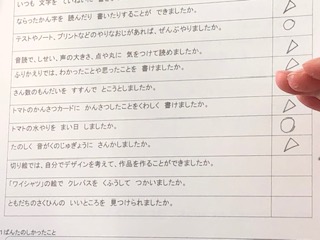 いつも 文字を ていねいに 書
ならったかん字を 読んだり 書いたりすることが できましたか。
テストやノート、プリントなどのやりなおしがあれば、ぜんぶやりましたか。
音読で、しせい、声の大きさ、点や丸に 気をつけて読めましたか。
ふりかえりでは、わかったことや思ったことを 書けましたか。
さん数のもんだいを すすんで とこうとしましたか。
トマトのかんさつカードに かんさつしたことをくわしく 書けましたか。
トマトの水やりを まい日 しましたか。
たのしく 音がくのじゅぎょうに さんかしましたか。
切り絵では、自分でデザインを考えて、作品を作ることができましたか。
「ワイシャツ」の絵で クレパスを くふうして つかいましたか。
ともだちのさくひんの いいところを 見つけられましたか。
ばんたのしかったこと